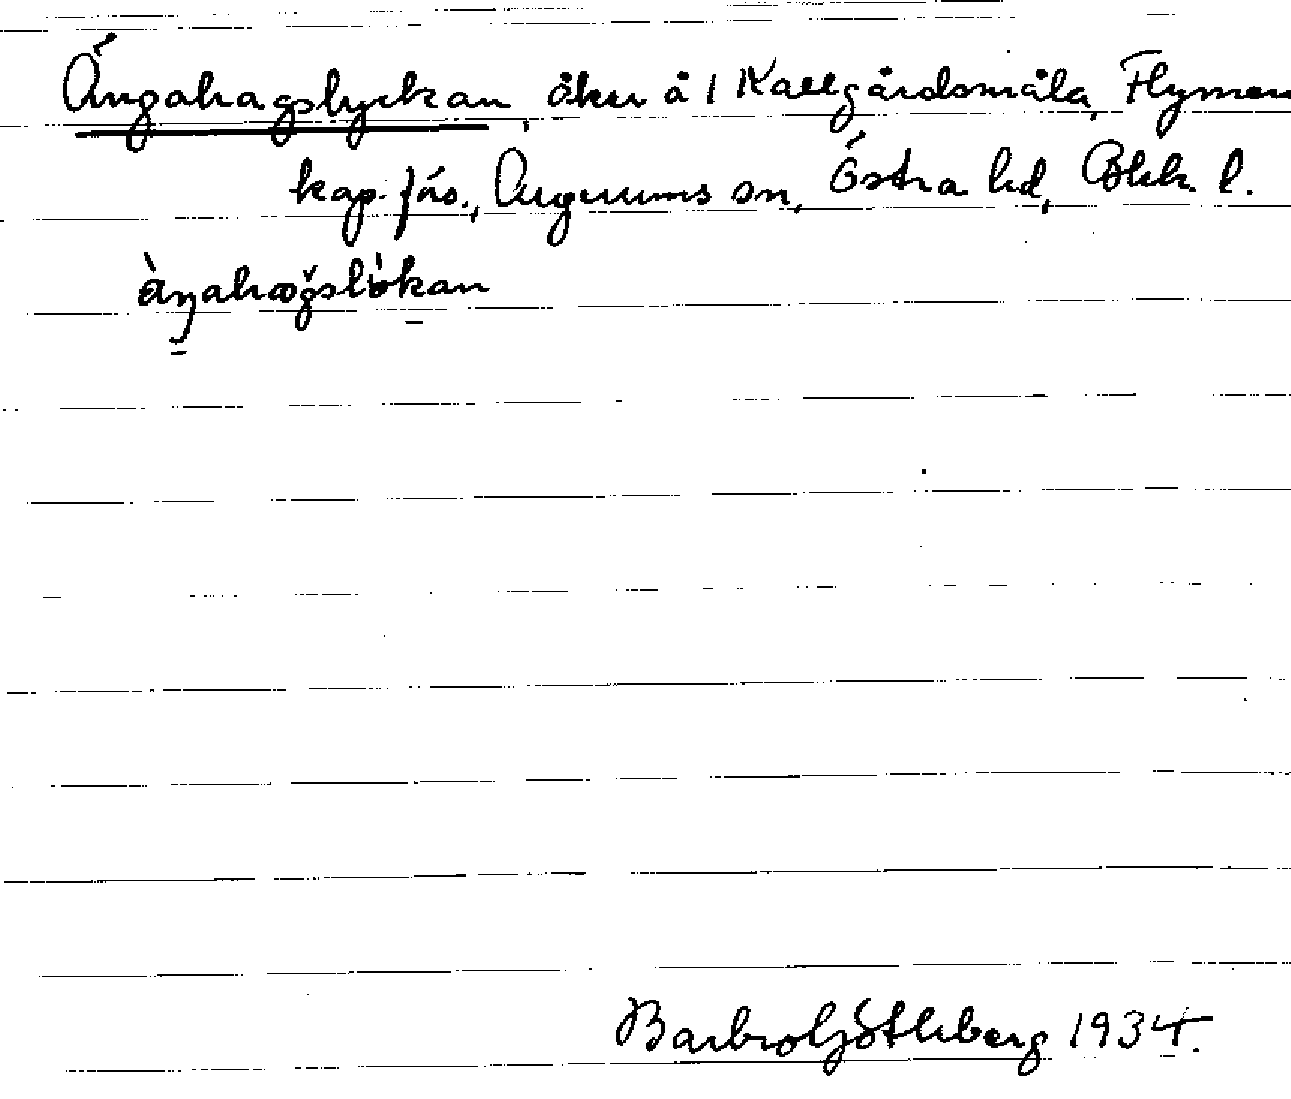 Ängahagslyckan, åker å 1 Kallgårdsmåla, Flymen
kap. förs., Augerums sn, Östra hd, Blek. l.
àŋahagslókan
Barbro Göthberg 1934.